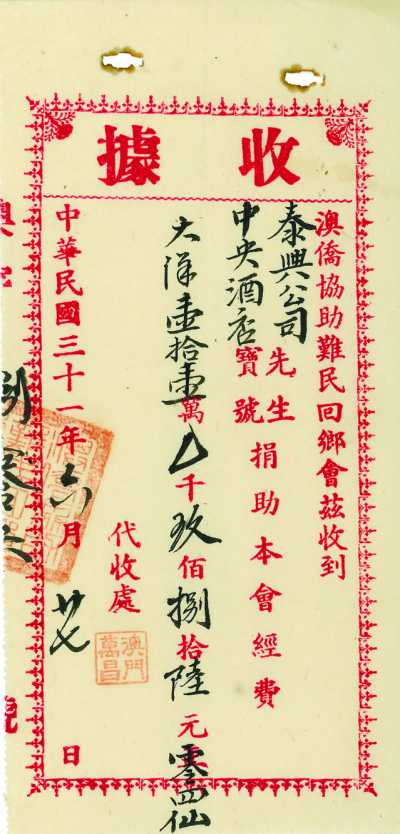 收據
澳僑協助難民回鄉會茲收到
泰興公司
中央酒店
先生
寶號
捐助本會經費
大洋壹拾壹萬〇千玖佰捌拾陸元零四仙
代收處
澳門萬昌
中華民國三十一年六月廿七日